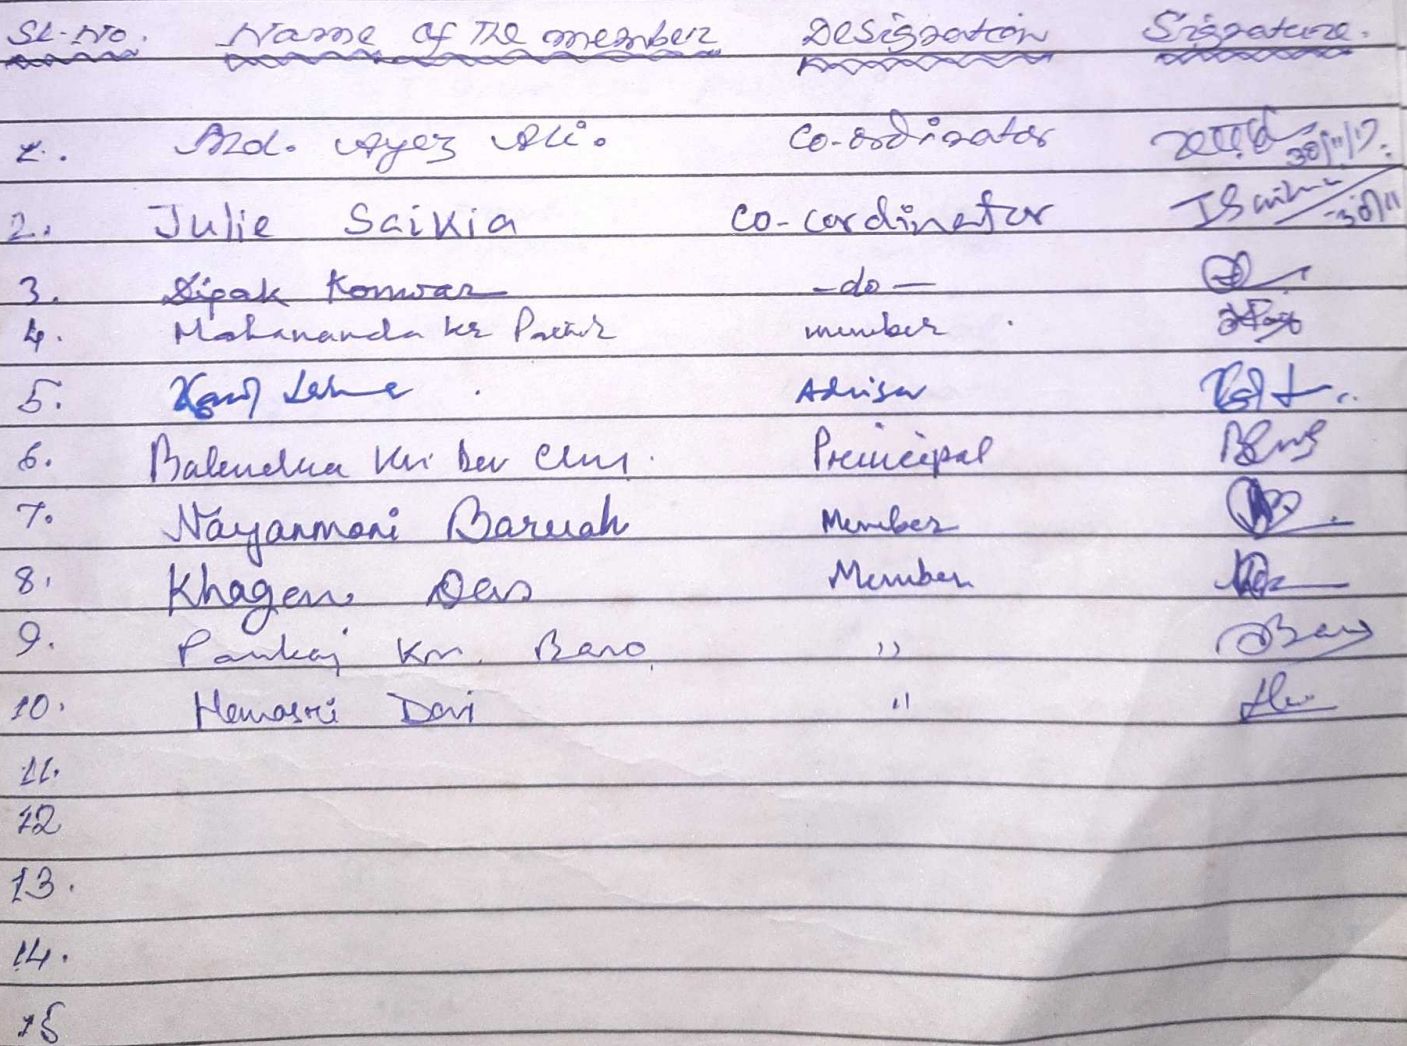 SL.No. Name of The member Designation Signature.
1. Md. Ayez Ali. Co-ordinator 30/11/17.
2. Julie Saikia co-cordinator 30/11
3. Dipak Konwar -do-
4. Mahananda kr member
5. Advisor
6. Balendra Kr Dev Principal
7. Nayanmoni Baruah Member
8. Khagen Das Member
9. Pankaj Kr. Baro "
10. Hemasri Devi "
11.
12
13.
14.
15